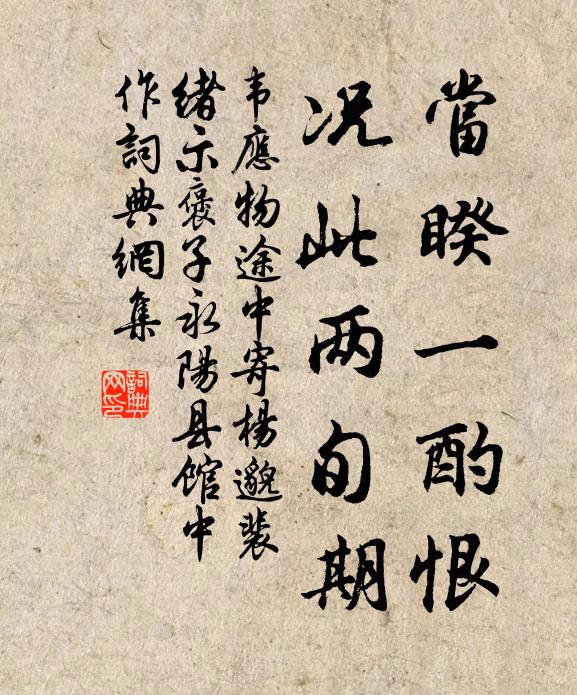 當睽一酌恨
况此两旬期
韦應物途中寄楊邈裴
绪示褒子永陽县館中
作詞典網集
詞典网印